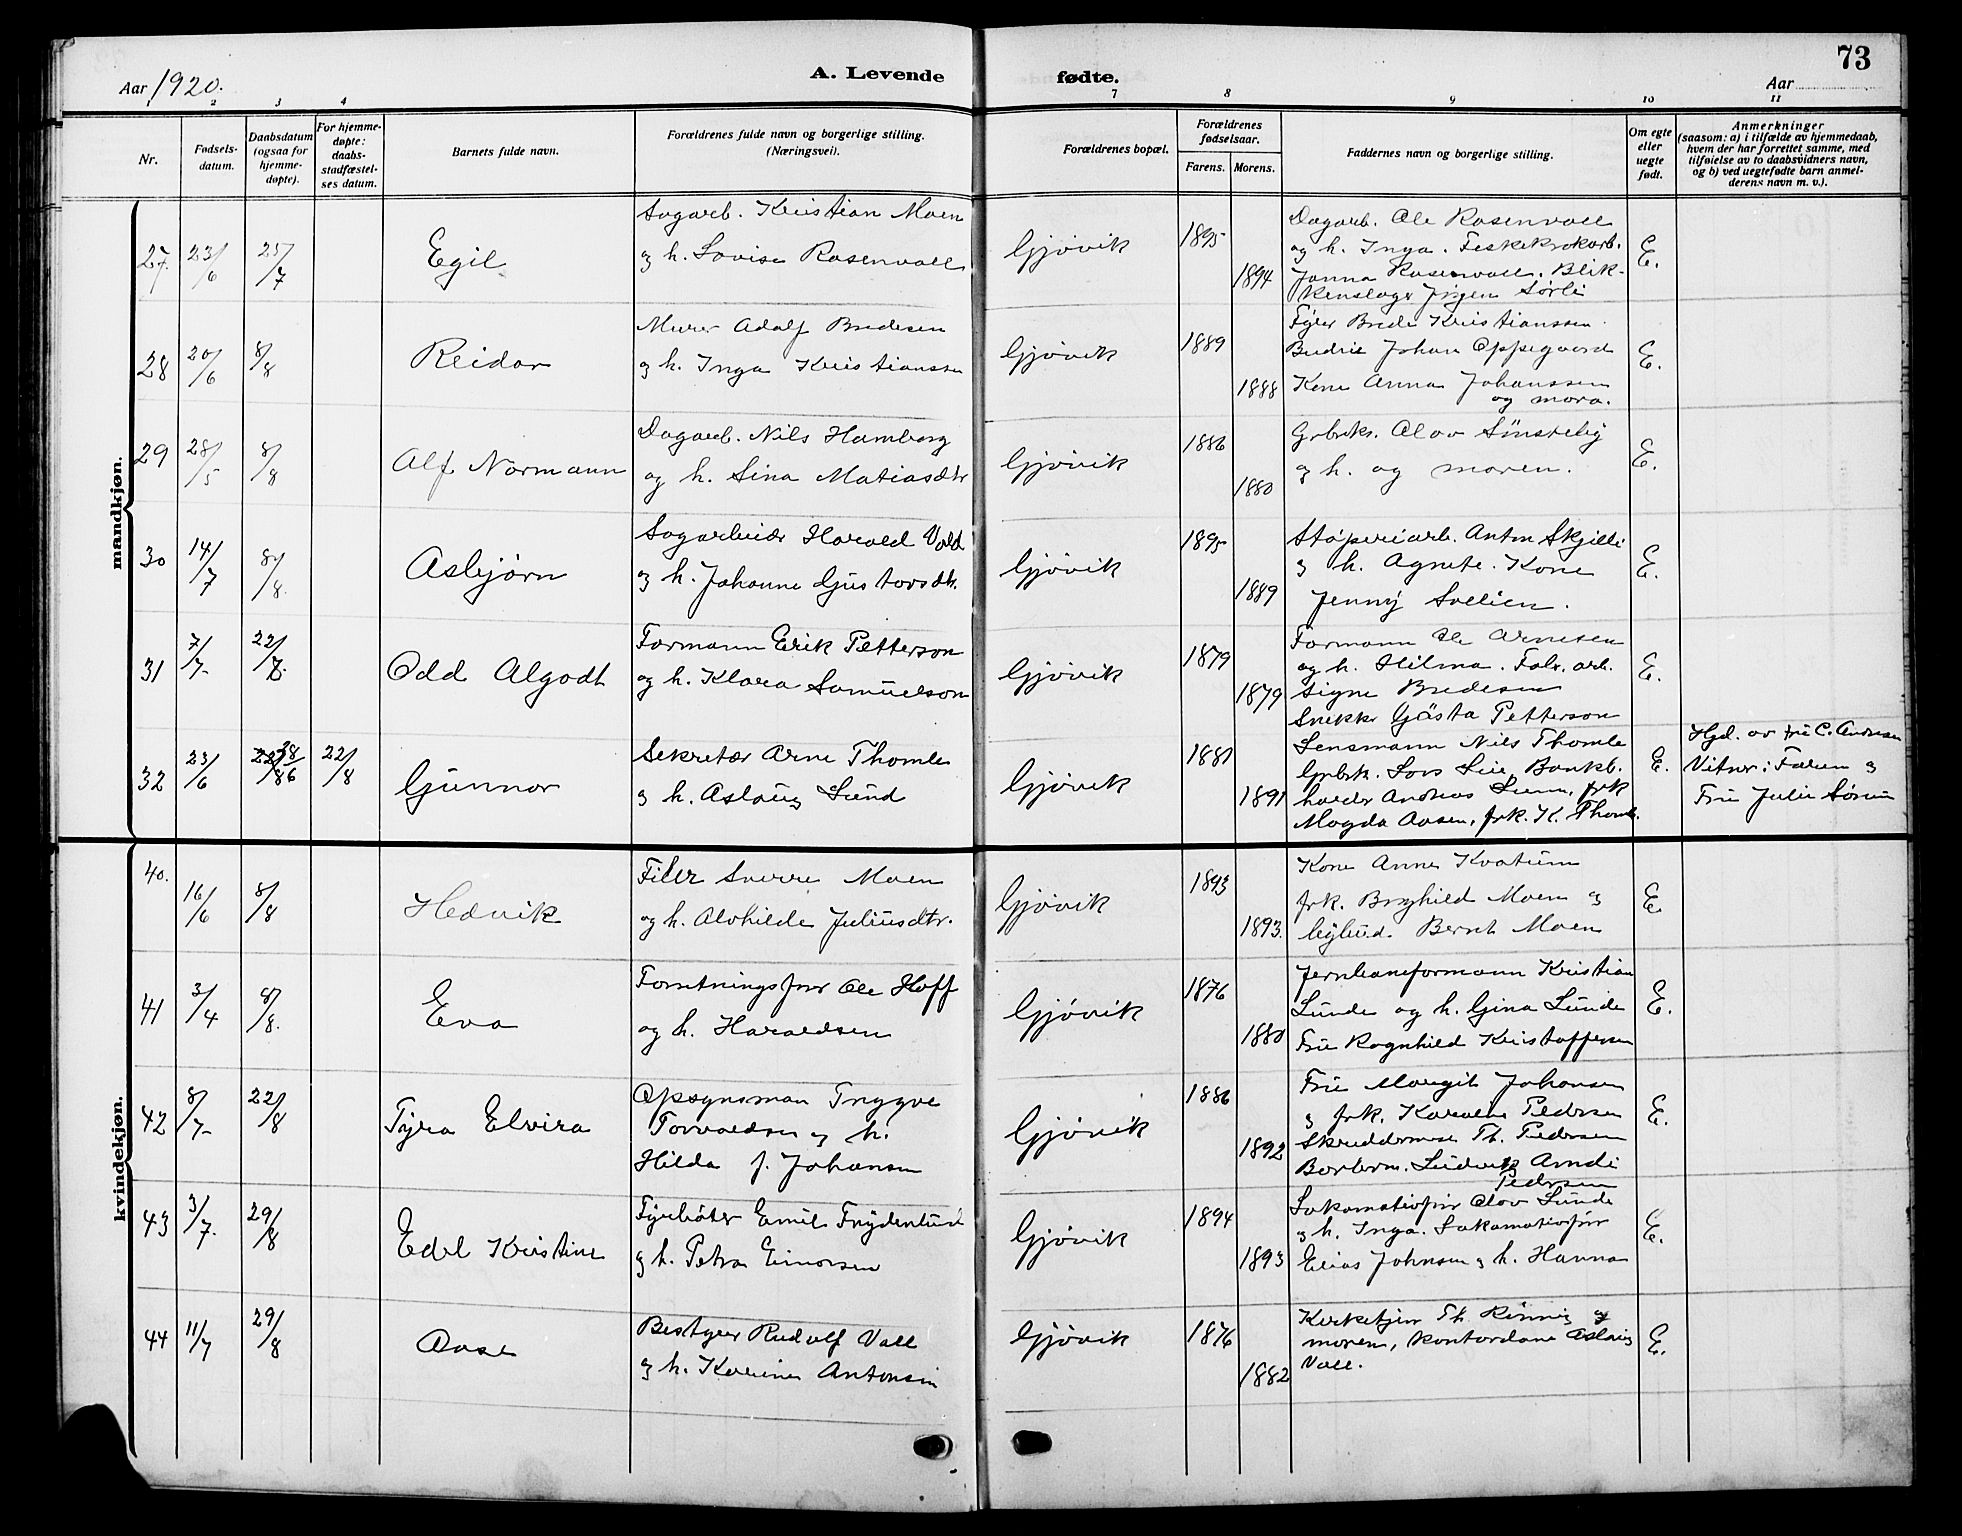 73
Aar 1920.
A. Levende
fødte.
Aar
1 2 3 4 7 8 9 10 11
Nr.
Fødsels-
datum.
Daabsdatum
(ogsaa for
hjemme-
døpte).
For hjemme-
døpte:
daabs-
stadfæstel-
ses datum.
Barnets fulde navn.
Forældrenes fulde navn og borgerlige stilling.
(Næringsvei).
Forældrenes bopæl.
Forældrenes
fødselsaar.
Farens. Morens.
Faddernes navn og borgerlige stilling.
Om egte
eller
uegte
født.
Anmerkninger
(saasom: a) i tilfælde av hjemmedaab,
hvem der har forrettet samme, med
tilføielse av to daabsvidners navn,
og b) ved uegtefødte barn anmel-
derens navn m. v.).
mandkjøn.
27. 23/6 25/7
Egil
Sagarb. Kristian Moen
og h. Lovise Rosenvall
Gjøvik
1895
1894
Dagarb. Ole Rosenvall
og h. Inga. Feskekrokarb.
Janna Rosenvall. Blik-
kenslager Jørgen Sørli
E.
28 20/6 8/8
Reidar
Murer Adolf Bredesen
og h. Inga Kristianssen
Gjøvik
1889
1888
Fyrer Brede Kristianssen
Budeie Johan Oppegaard
Kone Anna Johanssen
og mora.
E.
29 28/5 8/8
Alf Normann
Dagarb. Nils Hamborg
og h. Sina Matiasdtr
Gjøvik
1886
1880
Grbrks. Olav Sönsteby
og h. og moren.
E.
30 14/7 8/8.
Asbjørn
Sagarbeider Harald Vold
og h. Johanne Gustavsdtr.
Gjøvik
1895
1889
Støperiarb. Anton Skjelli
og h. Agnete. Kone
Jenny Sollien.
E.
31 7/7 22/7.
Odd Algodt
Formann Erik Petterson
og h. Klara Samuelson
Gjøvik
1879
1879
Formann Ole Arnesen
og h. Hilma. Fabr. arb.
Signe Bredesen
Snekker Gösta Petterson
E.
32 23/6 28/6 22/8
Gunnar
Sekretær Arne Thomle
og h. Aslaug Lund
Gjøvik
1881
1891
Lensmann Nils Thomle
Grbrk. Lars Lie, Bankb.
holder Andreas Lunn, frk
Magda Aasen, frk. K. Thomle.
E.
Hjd. av fru C. Andresen
Vitner: Faren og
Fru Julie Sørum
kvindekjøn.
40. 16/6 8/8
Hedvik
Filer Sverre Moen
og h. Alvhilde Juliusdtr.
Gjøvik
1893
1893.
Kone Anne Kvatum
frk. Brynhild Moen og
Bernt Moen
E.
41 3/4 8/8.
Eva
Forretningsfører Ole Hoff
og h. Haraldsen
Gjøvik
1876
1880
Jernbaneformann Kristian
Lunde og h. Gina Lunde
Fru Ragnhild Kristoffersen
E.
42 8/7 22/8
Tyra Elvira
Opsynsman Trygve
Torvaldsen og h.
Hilda f. Johansen
Gjøvik
1886
1892
Fru Margit Johansen
og frk. Karoline Pedersen
Skreddermes Th. Pedersen
Barberm. Ludvik Arndi
Pedersen
E.
43 3/7. 29/8
Edel Kristine
Fyrbøter Emil Frydenlund
og h. Petra Einarsen
Gjøvik
1894
1893
Lokomotivfører Olav Lunde
og h. Inga. Lokomotivfører
Elias Johnsen og h. Hanna
E.
44 11/7 29/8
Aase
Bestyrer Rudolf Vall
og h. Karine Antonsen
Gjøvik
1876
1882
Kirketjen Th. Rønnig og
moren, kontordame Aslaug
Vall.
E.